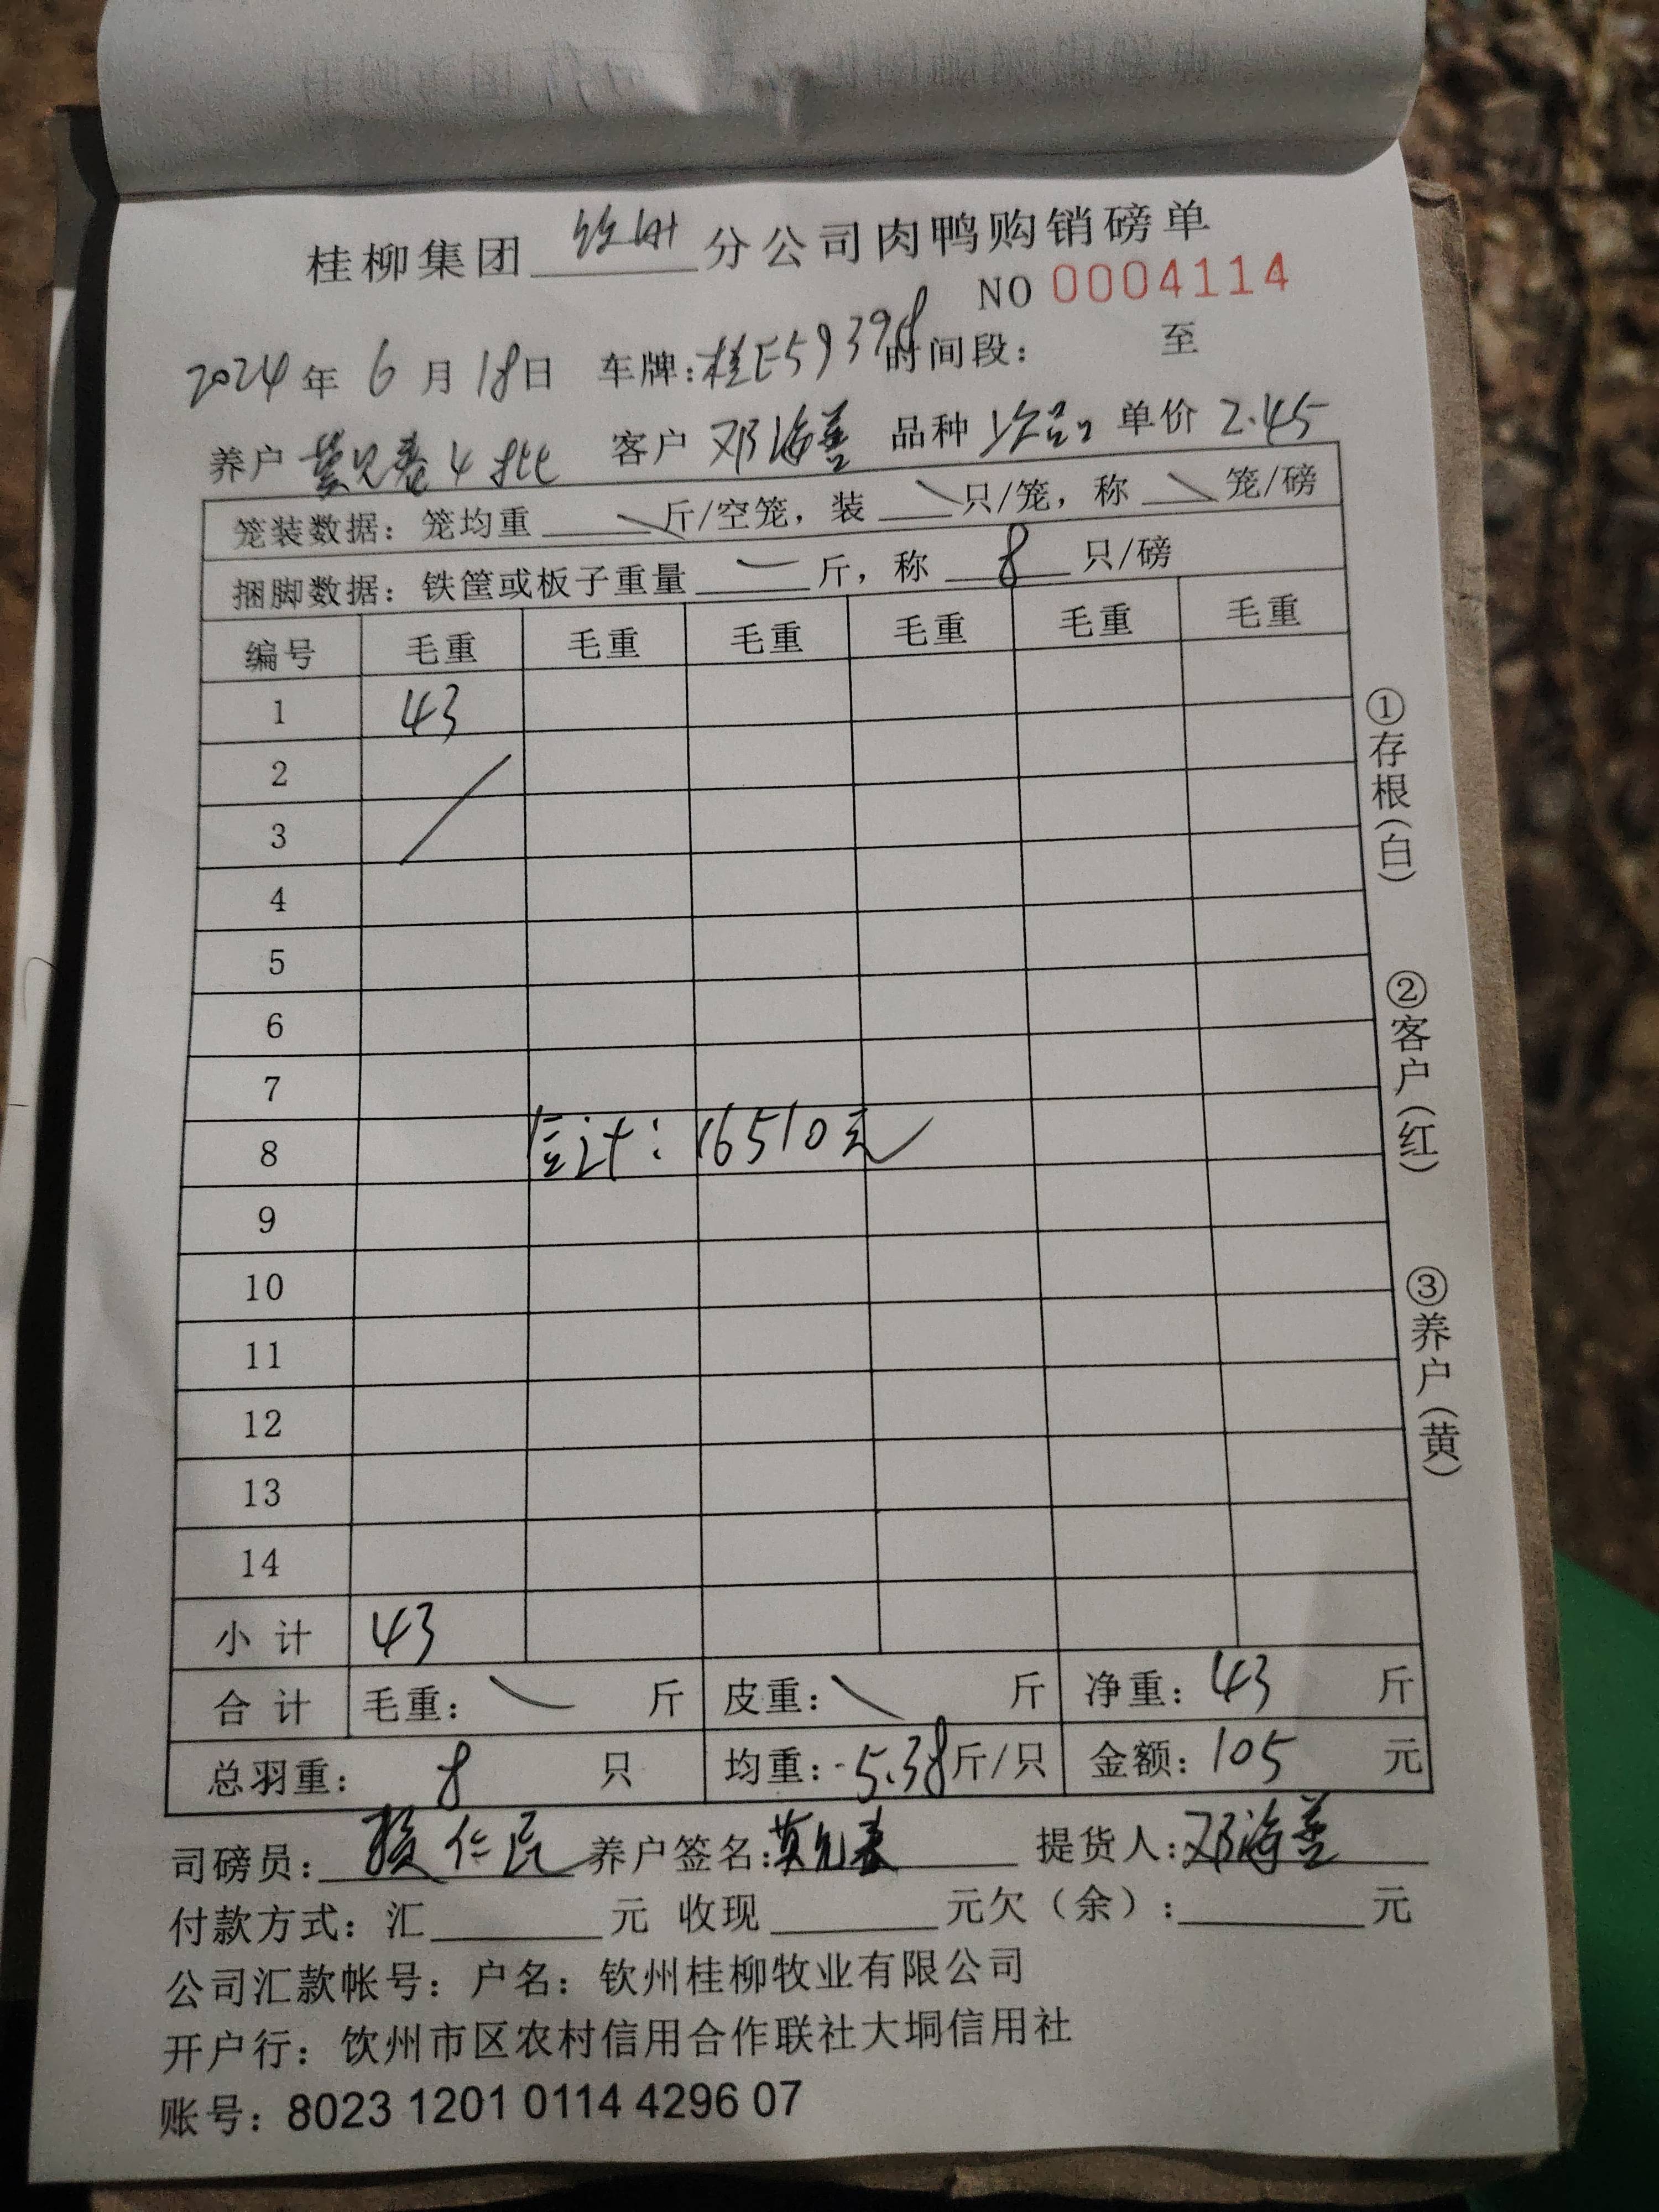 桂柳集团 钦州 分公司肉鸭购销磅单
NO 0004114
2024年 6 月 18日 车牌:桂E59398 时间段: 至
养户 莫兄春4批 客户 邓海善 品种 次品 单价 2.45
笼装数据: 笼均重 斤/空笼, 装 只/笼, 称 笼/磅
捆脚数据: 铁筐或板子重量 斤, 称 8 只/磅
编号 毛重 毛重 毛重 毛重 毛重 毛重
1 43
2
3
4
5
6
7
8 总计: 16510元
9
10
11
12
13
14
小计 43
合计 毛重: 斤 皮重: 斤 净重: 43 斤
总羽重: 8 只 均重: 5.38斤/只 金额: 105 元
司磅员: 仁民 养户签名:莫兄春 提货人:邓海善
付款方式: 汇 元 收现 元欠(余): 元
公司汇款帐号: 户名: 钦州桂柳牧业有限公司
开户行: 钦州市区农村信用合作联社大垌信用社
账号: 8023 1201 0114 4296 07
①存根(白)
②客户(红)
③养户(黄)